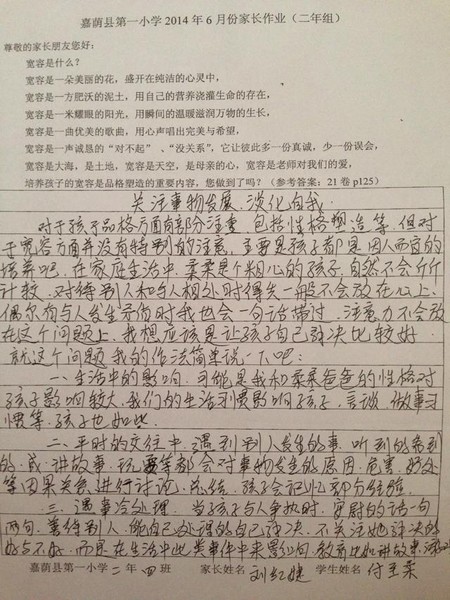 嘉荫县第一小学2014年6月份家长作业（二年组）
尊敬的家长朋友您好：
宽容是什么？
宽容是一朵美丽的花，盛开在纯洁的心灵中，
宽容是一方肥沃的泥土，用自己的营养浇灌生命的存在，
宽容是一米耀眼的阳光，用瞬间的温暖滋润万物的生长，
宽容是一曲优美的歌曲，用心声唱出完美与希望，
宽容是一声诚恳的“对不起”、“没关系”，它让彼此多一份真诚，少一份误会，
宽容是大海，是土地，宽容是天空，是母亲的心，宽容是老师对我们的爱，
培养孩子的宽容是品格塑造的重要内容，您做到了吗？（参考答案：21卷 p125）
关注事物发展 淡化自我
对于孩子品格方面部分注重，包括性格塑造等，但对
于宽容方面并没有特别的注意，主要是孩子都是因人而宜的
培养吧，在家庭生活中，柔柔是个粗心的孩子，自然不会斤斤
计较，对待别人和与人相处时得失一般不会放在心上、
偶尔有与人发生矛盾时我也会一句话带过，注意力不会放
在这个问题上，我想应该是让孩子自己解决比较好。
就这个问题我的作法简单说一下吧：
一、生活中的影响，可能是我和柔柔爸爸的性格对
孩子影响较大，我们的生活习惯影响孩子，言谈、做事习
惯等，孩子也如此。
二、平时的交往中，遇到别人发生的事，听到的看到
的，或讲故事、玩耍等都会对事物发生的原因、危害、好处
等因果关系进行讨论，总结，孩子会记忆部分经验。
三、遇事冷处理，当孩子与人争执时，安慰的话一句
两句，善待别人，能自己处理的自己解决，不关注她解决的
好与不好，而是在生活中此类事件中来影响，教育比如讲故事
嘉荫县第一小学二年四班 家长姓名 刘红婕 学生姓名